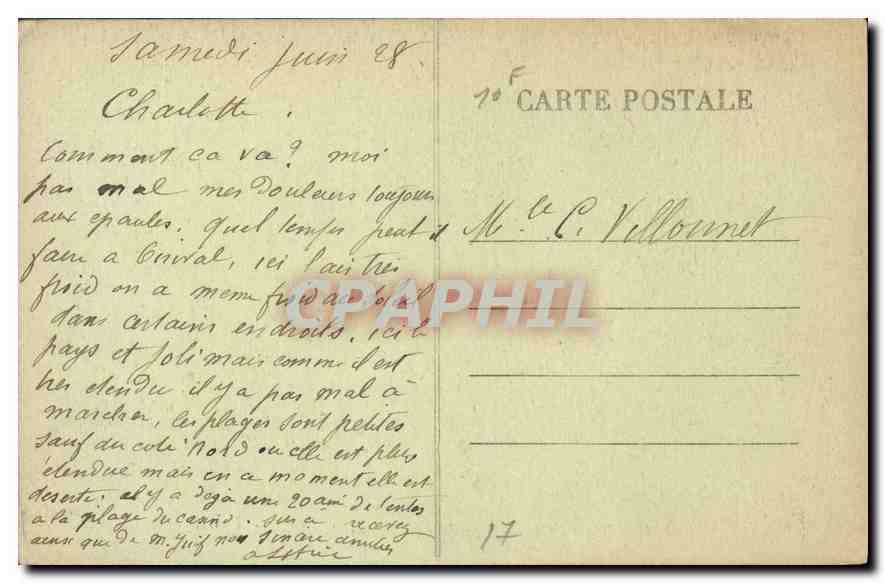 Samedi Juin 28
Charlotte.
Comment ca va? moi
pas mal mes Douleurs toujours
aux epaules. quel temps peut il
faire a, ici l'air tres
froid on a meme froid au soleil
dans certains endroits. ici le
pays et Joli mais comme il est
tres etendu il y a pas mal à
marcher, les plages sont petites
sauf du coté Nord ou elle est plus
étendue mais en ce moment elle est
deserte. il y a deja une 20aine de tentes
a la plage du. sur ce recevez
ainsi que de M. amities
10F
CARTE POSTALE
Mlle C. Villounet
CPAPHIL
17